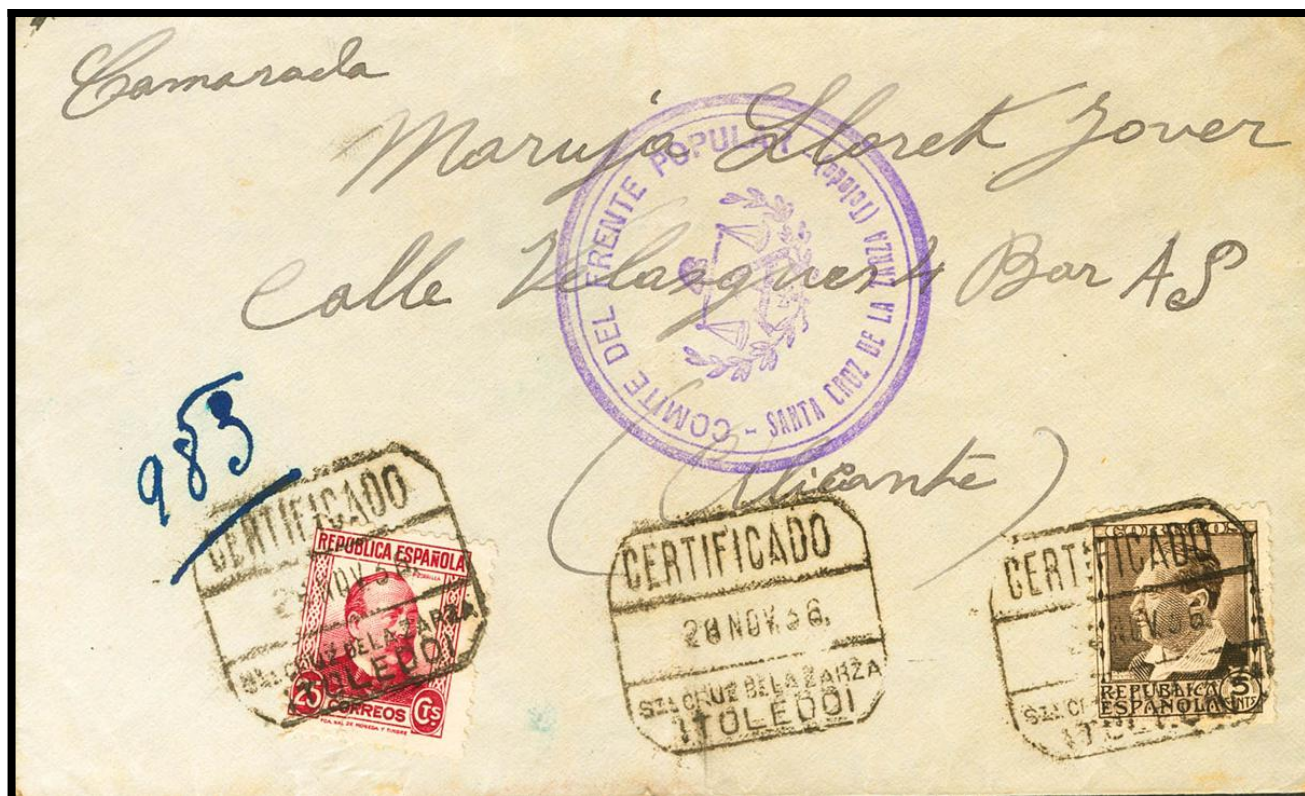 Camarada
Maruja Lloret Jover
Calle Velasques 4 Bar AS
(Alicante)
COMITE DEL FRENTE POPULAR - SANTA CRUZ DE LA ZARZA (Toledo)
983
CERTIFICADO
28 NOV. 36.
STA. CRUZ DE LA ZARZA
(TOLEDO)
REPUBLICA ESPAÑOLA
25 Cts
CORREOS
CERTIFICADO
28 NOV. 36.
STA. CRUZ DE LA ZARZA
(TOLEDO)
CERTIFICADO
NOV. 36.
CORREOS
REPUBLICA
ESPAÑOLA
5
CNTS